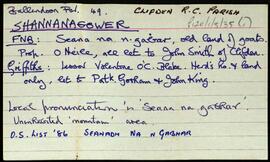 Ballindoon Par. 49. CLIFDEN R.C. PARISH
SHANNANAGOWER
FNB: Seana na n-gabar, old land of goats
Prop. O'Neice, acc let to John Smith of Clifden
Griffiths: lessor Valentine O'C. Blake. Herd's ho & land
only, let to Patk Gorham & John King.
Local pronunciation is 'Seana na gabhar'.
Uninhabited 'mountain' area.
O.S. LIST '86 SEANADH NA N GABHAR